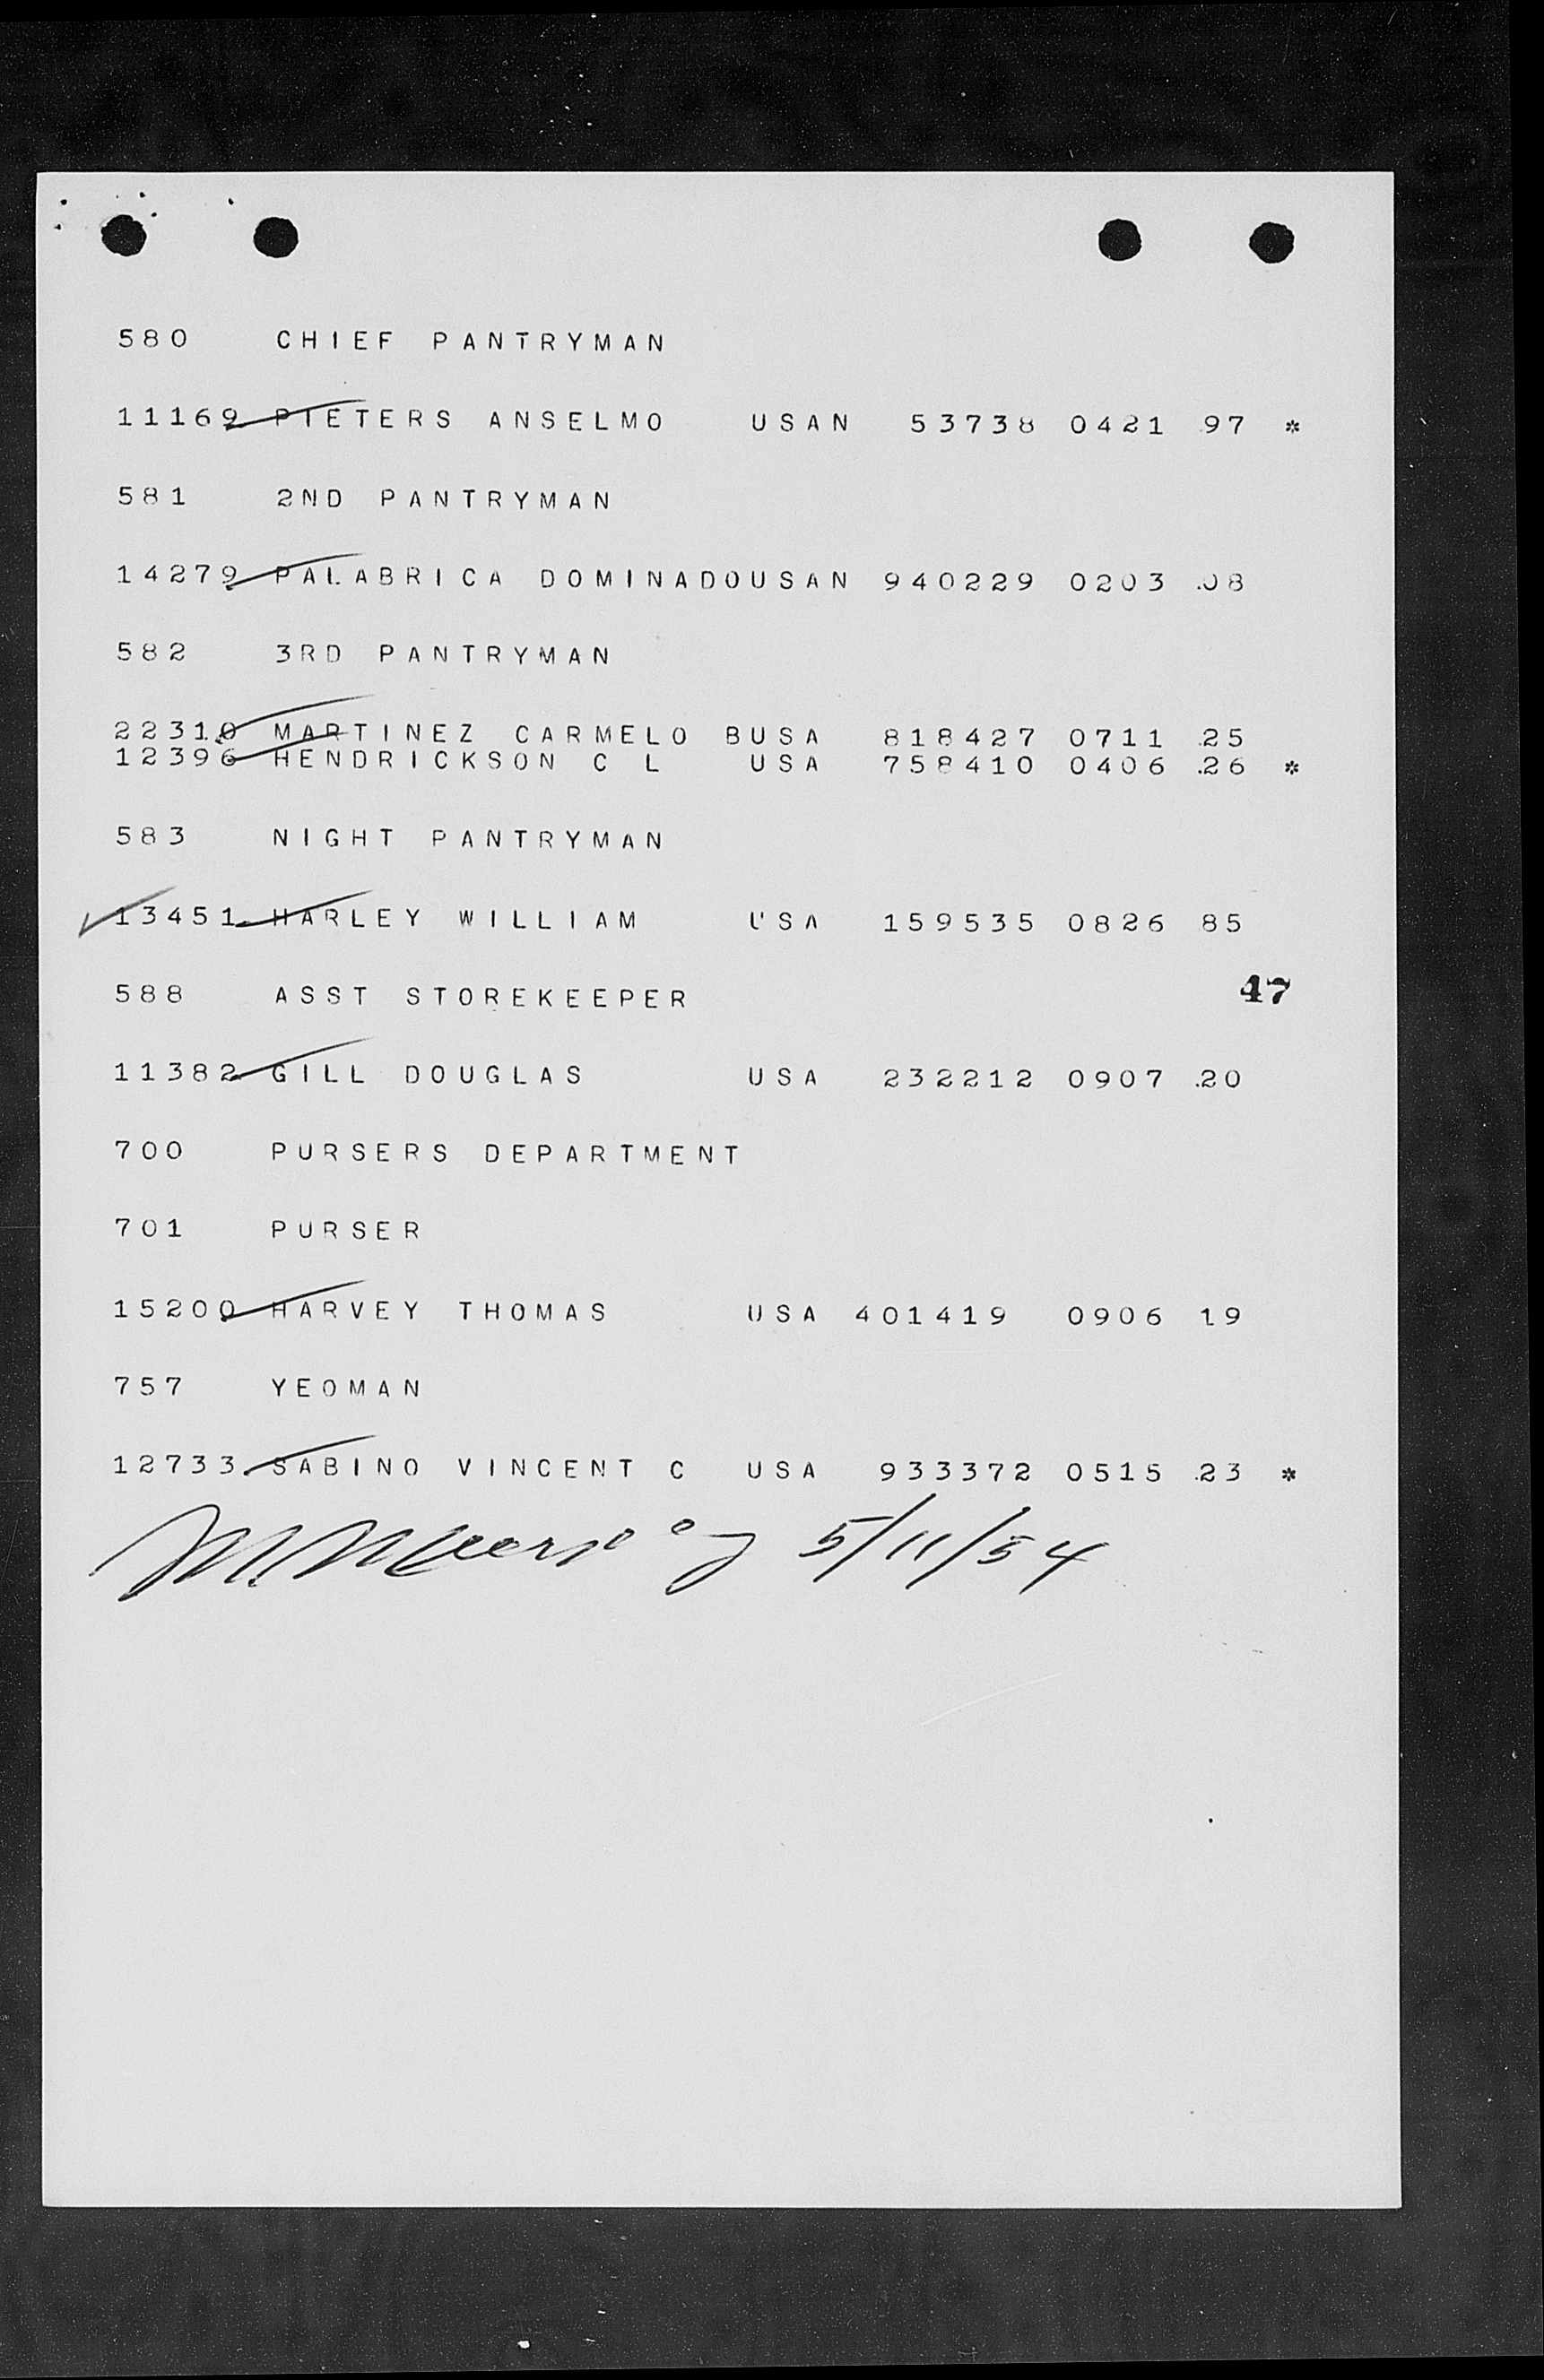 580 CHIEF PANTRYMAN
11169 PIETERS ANSELMO USAN 53738 0421 97 *
581 2ND PANTRYMAN
14279 PALABRICA DOMINADOUSAN 940229 0203 08
582 3RD PANTRYMAN
22310 MARTINEZ CARMELO BUSA 818427 0711 25
12396 HENDRICKSON C L USA 758410 0406 26 *
583 NIGHT PANTRYMAN
13451 HARLEY WILLIAM USA 159535 0826 85
588 ASST STOREKEEPER 47
11382 GILL DOUGLAS USA 232212 0907 20
700 PURSERS DEPARTMENT
701 PURSER
15200 HARVEY THOMAS USA 401419 0906 19
757 YEOMAN
12733 SABINO VINCENT C USA 933372 0515 23 *
5/11/54